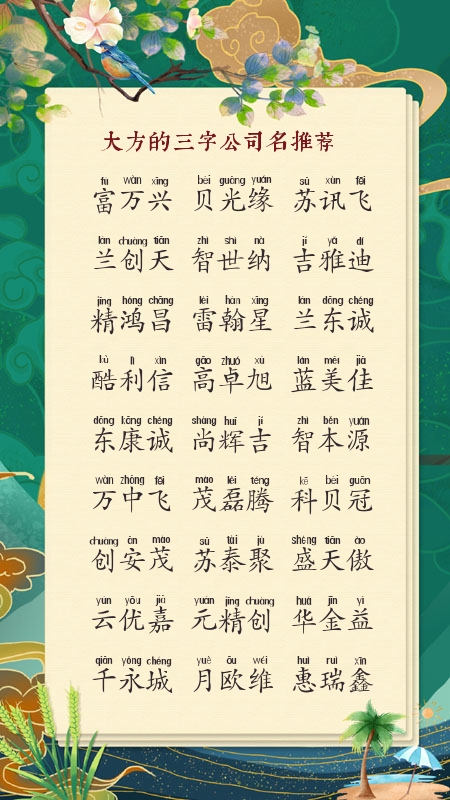 大方的三字公司名推荐
fù wàn xīng bèi guāng yuán sū xùn fēi
富万兴 贝光缘 苏讯飞
lán chuàng tiān zhì shì nà jí yǎ dí
兰创天 智世纳 吉雅迪
jīng hóng chāng léi hàn xīng lán dōng chéng
精鸿昌 雷翰星 兰东诚
kù lì xìn gāo zhuó xù lán měi jiā
酷利信 高卓旭 蓝美佳
dōng kāng chéng shàng huī jí zhì běn yuán
东康诚 尚辉吉 智本源
wàn zhōng fēi mào lěi téng kē bèi guān
万中飞 茂磊腾 科贝冠
chuàng ān mào sū tài jù shèng tiān ào
创安茂 苏泰聚 盛天傲
yún yōu jiā yuán jīng chuàng huá jīn yì
云优嘉 元精创 华金益
qiān yǒng chéng yuè ōu wéi huì ruì xīn
千永城 月欧维 惠瑞鑫